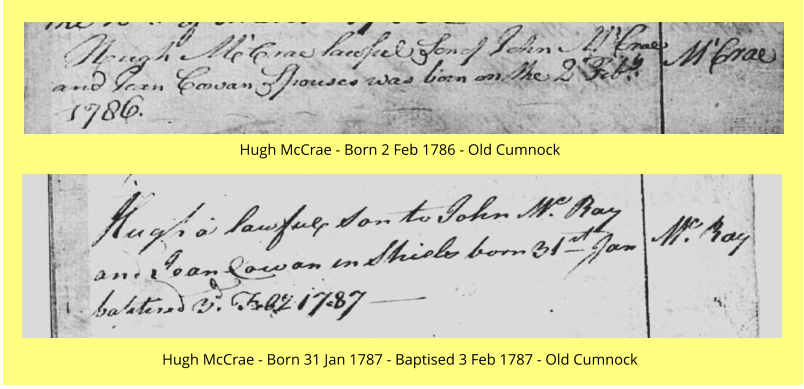 Hugh McCrae lawful Son of John McCrae
and Jean Cowan Spouses was born on the 2d Feby.
1786.
McCrae
Hugh McCrae - Born 2 Feb 1786 - Old Cumnock
Hugh a lawful son to John Mc. Ray
and Joan Cowan in Shiels born 31st Jan
baptized 3d. Feby 1787
Mc. Ray
Hugh McCrae - Born 31 Jan 1787 - Baptised 3 Feb 1787 - Old Cumnock